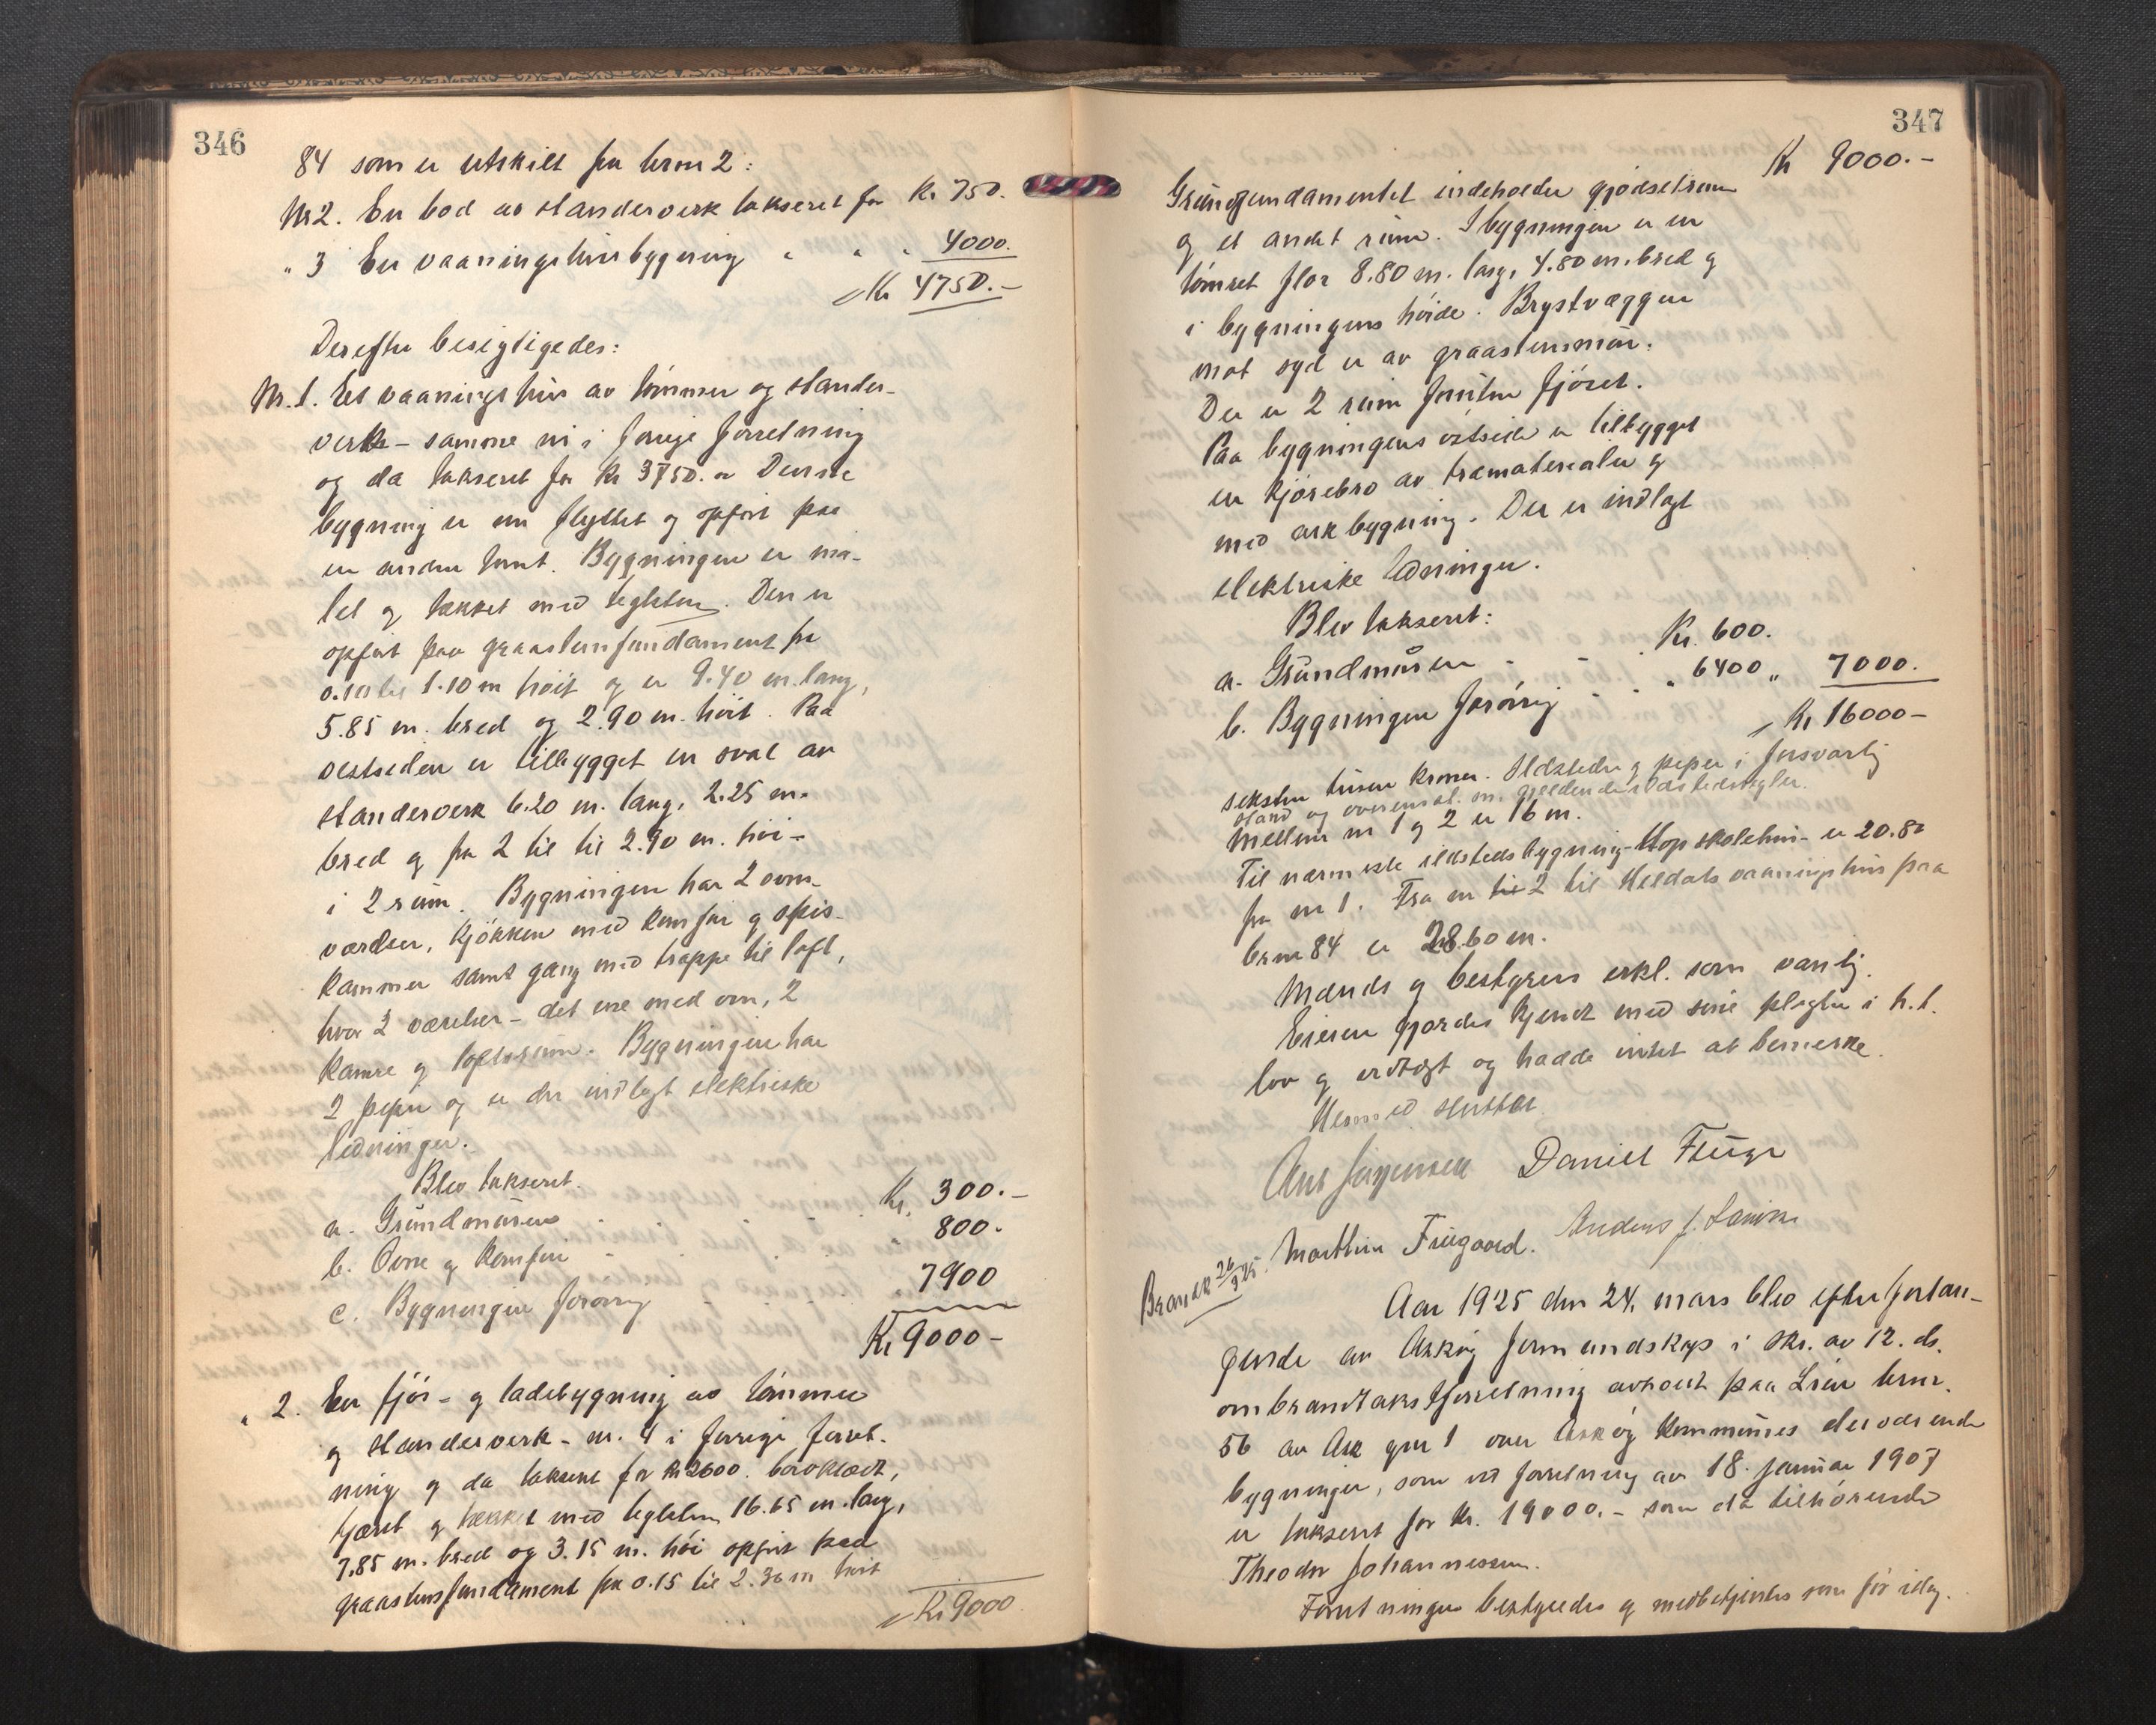 346
84 som er utskilt fra brnr 2:
Nr 2. En bod av standerverk taksert for Kr 750.
" 3 En vaaningshusbygning " " " 4000.
Kr 4750.-
Derefter besigtigedes:
Nr. 1. Et vaaningshus av tømmer og stander-
verk - samme nr i forrige forretning
og da taksert for Kr 3750.- Denne
bygning er nu flyttet og opført paa
en anden tomt. Bygningen er ma-
let og tækket med teglsten. Den er
opført paa graastensfundament fra
til 1.10 m høit og er 9.40 m. lang,
5.85 m. bred og 2.90 m. høit. Paa
vestsiden er tilbygget en sval av
standerverk 6.20 m. lang, 2.25 m.
bred og fra 2 til til 2.90 m. høi -
i 2 rum. Bygningen har 2 ovns-
værelser, kjøkken med komfur og spis-
kammer samt gang med trappe til loft,
hvor 2 værelser - det ene med ovn, 2
kamre og loftsrum. Bygningen har
2 peper og er der indlagt elektriske
ledninger.
Blev taksert.
a. Grundmuren - - - Kr. 300.-
b. Ovne og komfur - - - " 800.
c. Bygningen forøvrig - - 7900
Kr 9000-
" 2. En fjøs- og ladebygning av tømmer
og standerverk - nr. 4 i forrige forret-
ning og da taksert for Kr 2600. bordklædt,
tjæret og tækket med teglsten 16.65 m. lang,
7.85 m. bred og 3.15 m. høi opført paa
graastensfundament fra 0.15 til 2.30 m høit
Kr 9000.
347
Kr 9000.-
Grundfundamentet indeholder gjødselrum
og et andet rum. I bygningen er en
tømret flor 8.80 m. lang, 4.80 m. bred og
i bygningens høide. Brystvæggen
mot syd er av graastensmur.
Der er 2 rum foruten fjøset.
Paa bygningens østside er tilbygget
en kjørebro av træmaterialer og
med arkbygning. Der er indlagt
elektriske ledninger.
Blev taksert:
a. Grundmuren - - Kr. 600.
b. Bygningen forøvrig - - " 6400 " 7000.
Kr 16000-
seksten tusen kroner. Ildsteder og peper i forsvarlig
stand og overensst. m. gjeldende ildstedsregler.
Mellem nr 1 og 2 er 16 m.
Til nærmeste ildstedsbygning - Hop skolehus - er 20.80
fra nr 1. Fra nr 2 til Meldals vaaningshus paa
brnr 84 er 28.60 m.
Mænds og bestyrers erkl. som vanlig.
Eieren gjordes kjendt med sine plegter i h. t.
lov og vedtægt og hadde intet at bemerke.
Hermed sluttet
Ans Jørgensen Daniel Fluge
Marthin Fluegaard. Anders J.
26/3 25
Aar 1925 den 24. mars blev efter forlan-
gende av Askøy formandskap i skr. av 12. ds.
ombrandtakstforretning avholdt paa Lien brnr.
56 av Ask gnr 1 over Askøy kommunes derværende
bygninger, som ved forretning av 18. januar 1907
er taksert for Kr. 19000.- som da tilhørende
Theodor Johannessen.
Forretningen bestyredes og medbetjentes som før idag.